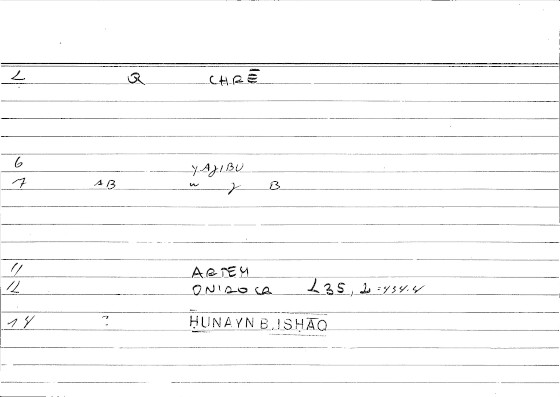 2 Q CHRĒ
6 yAjIBU
7 AB w j B
11 ARTEM
12 ONIROCR 135, 2=434.4
14 ? ḤUNAYN B. ISḤĀQ